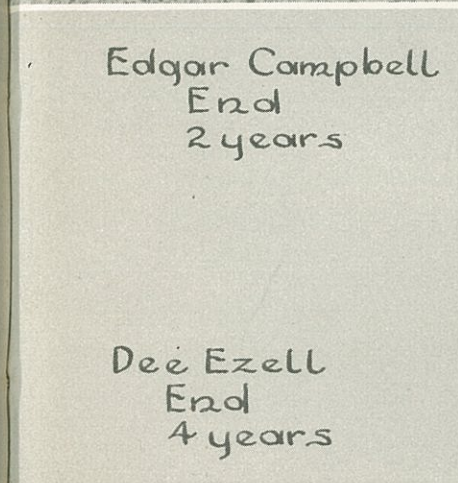 Edgar Campbell
End
2 years
Dee Ezell
End
4 years